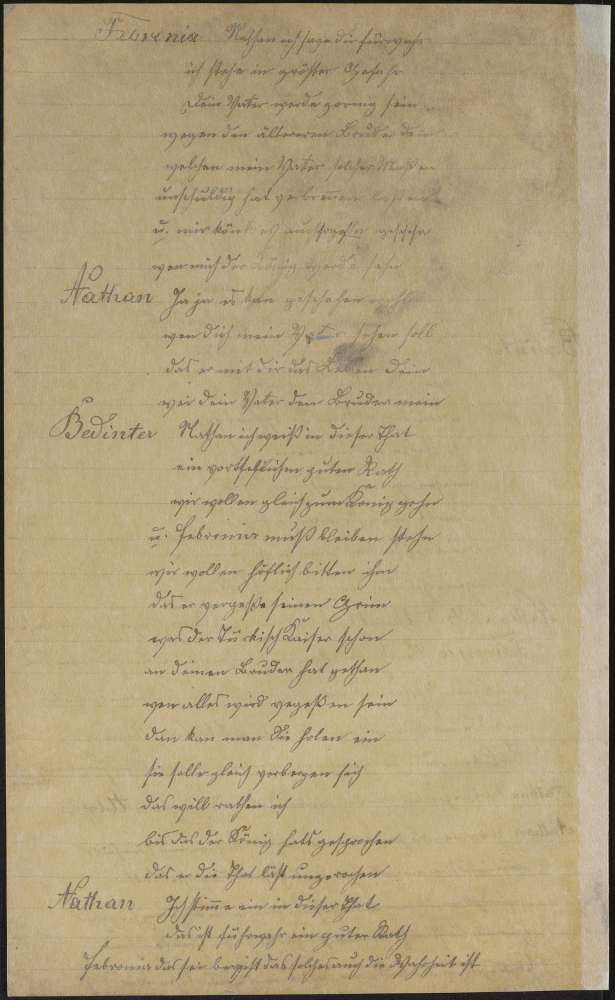 Febronia Nathan ich sage dir fürwahr
ich stehe in größter Gefahr
Dein Vater werde zornig sein
wegen den ältereren Bruder dein
welchen mein Vater solcher
unschuldig hat verbrennen lassen
u. mir könt es auch so geschehn
wen mich der König werde sehn
Nathan Ja ja es kan geschehen
wen dich mein Vater sehen soll
das er mit dir das Leben dein
wie dein Vater den Bruder mein
Bedinter Nathan ich weiß in dieser That
ein vortheflichen guten Rath
wir wollen gleich zum König gehn
u. Febronia muß bleiben stehn
wir wollen höflich bitten ihm
das er vergeße seinen Grim
was der Türkisch Kaiser schon
an deinen Bruder hat gethan
wen alles wird vegeßen sein
dan kan man Sie holen ein
sie solle gleich verbergen sich
das will rathen ich
bis das der König hats gesprochen
das er die That läßt ungerochen
Nathan Ich stimme ein in dieser That
das ist führwahr ein guter Rath
Febronia das sei das solches auch die Wahrheit ist